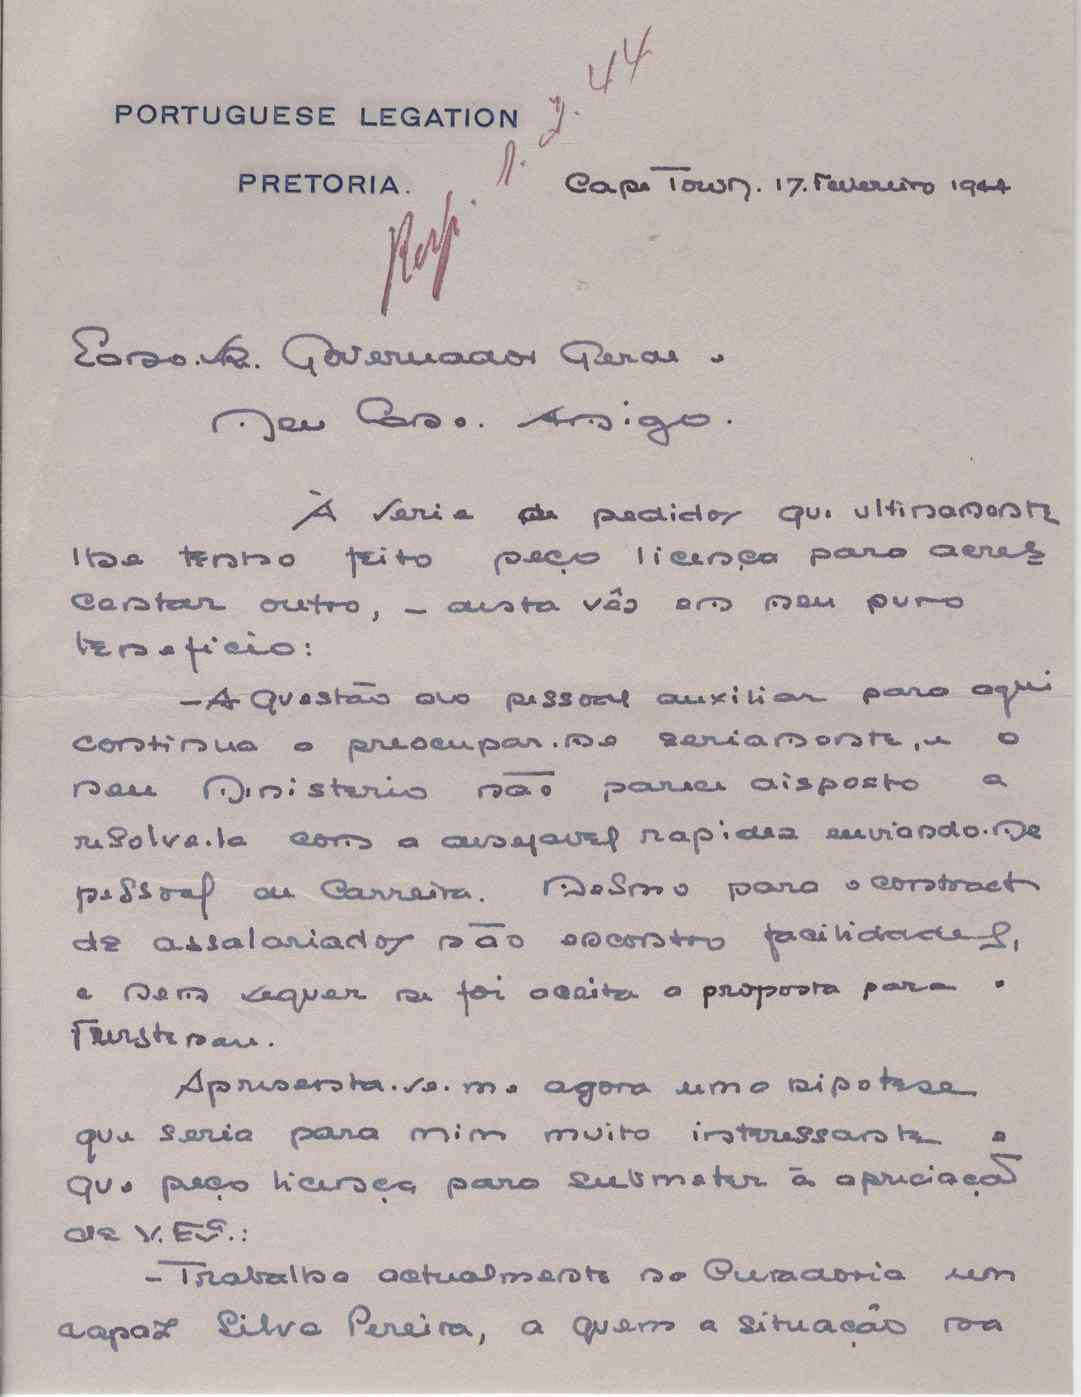 PORTUGUESE LEGATION
PRETORIA.
Resp. 1. 3. 44
Cape Town. 17. Fevereiro 1944
Exmo. Sr. Governador Geral e
Meu Caro. Amigo.
À serie de pedidos que ultimamente
lhe tenho feito peço licença para acres
centar outro, – desta vês em meu puro
beneficio:
– A questão do pessoal auxiliar para aqui
continua a preocupar-me seriamente, e o
meu Ministerio não parece disposto a
resolve-la com a desejavel rapidez enviando-me
pessoal de Carreira. Mesmo para o contracto
de assalariados não encontro facilidades,
e nem sequer se foi aceita a proposta para o
Furstenau.
Apresenta-se-me agora uma hipotese
que seria para mim muito interessante e
que peço licença para submeter à apreciação
de V. Exª.:
– Trabalha actualmente na Curadoria um
rapaz Silva Pereira, a quem a situação na